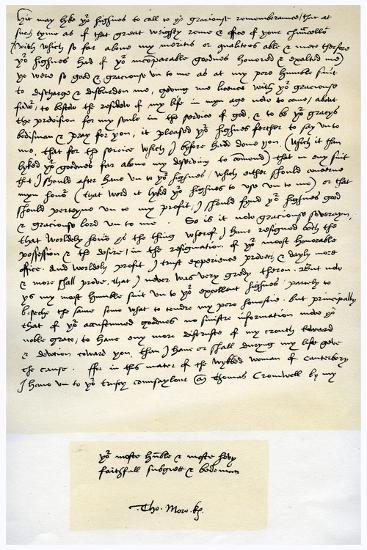 hit may lyke yor highnes to call to yor graciouse remembraunce, that at
such tyme as of that great weighty rome & office of your chauncellor
(with which so far above my merites or qualitees able & mete therefore
yor highnes had of yor incomparable goodnes honored & exalted me)
ye were so good & graciouse vn to me as at my pore humble suit
to discharge & disburden me, geving me licence with yor graciouse
favor, to bestow the residew of my life in myn age now to come, about
the provision for my soule in the service of god, & to be yor gracys
bedisman & pray for you, it pleased yor highnes ferther to say vn to
me, that for the service which I byfore had done you (which it than
lyked yor goodnes far above my deserving to commend) that in eny suit
that I should after have vn to yor highnes, which either should concerne
myn honor (that word it lyked yor highnes to vse vn to me) or that
should pertayne vn to my profit, I should fynd yor highnes good
& graciouse lord vn to me So is it now graciouse soverayn,
that worldely honor ys the thing, whereof I have resigned both the
possession & the desire, in the resignation of yor moost honorable
office. And worldely profit, I trust experience proveth, & dayly more
& more shall prove, that I never was very gredy theron But now
ys my most humble suit vn to yor excellent highnes, partely to
biseche the same some what to tendre my pore honestie, but principally
that of yor accustumed goodnes no sinistre information move yor
noble grace, to have eny more distruste of my trouth
& devotion toward you, than I have or shall during my life geve
the cause. ffor in this mater of the wykked woman of Canterbery
I have vn to yor trusty counsaylour Mr Thomas Cromwell by my
yor moste humble & moste hevy
faithfull subgett & bedeman
Tho. More. kg.